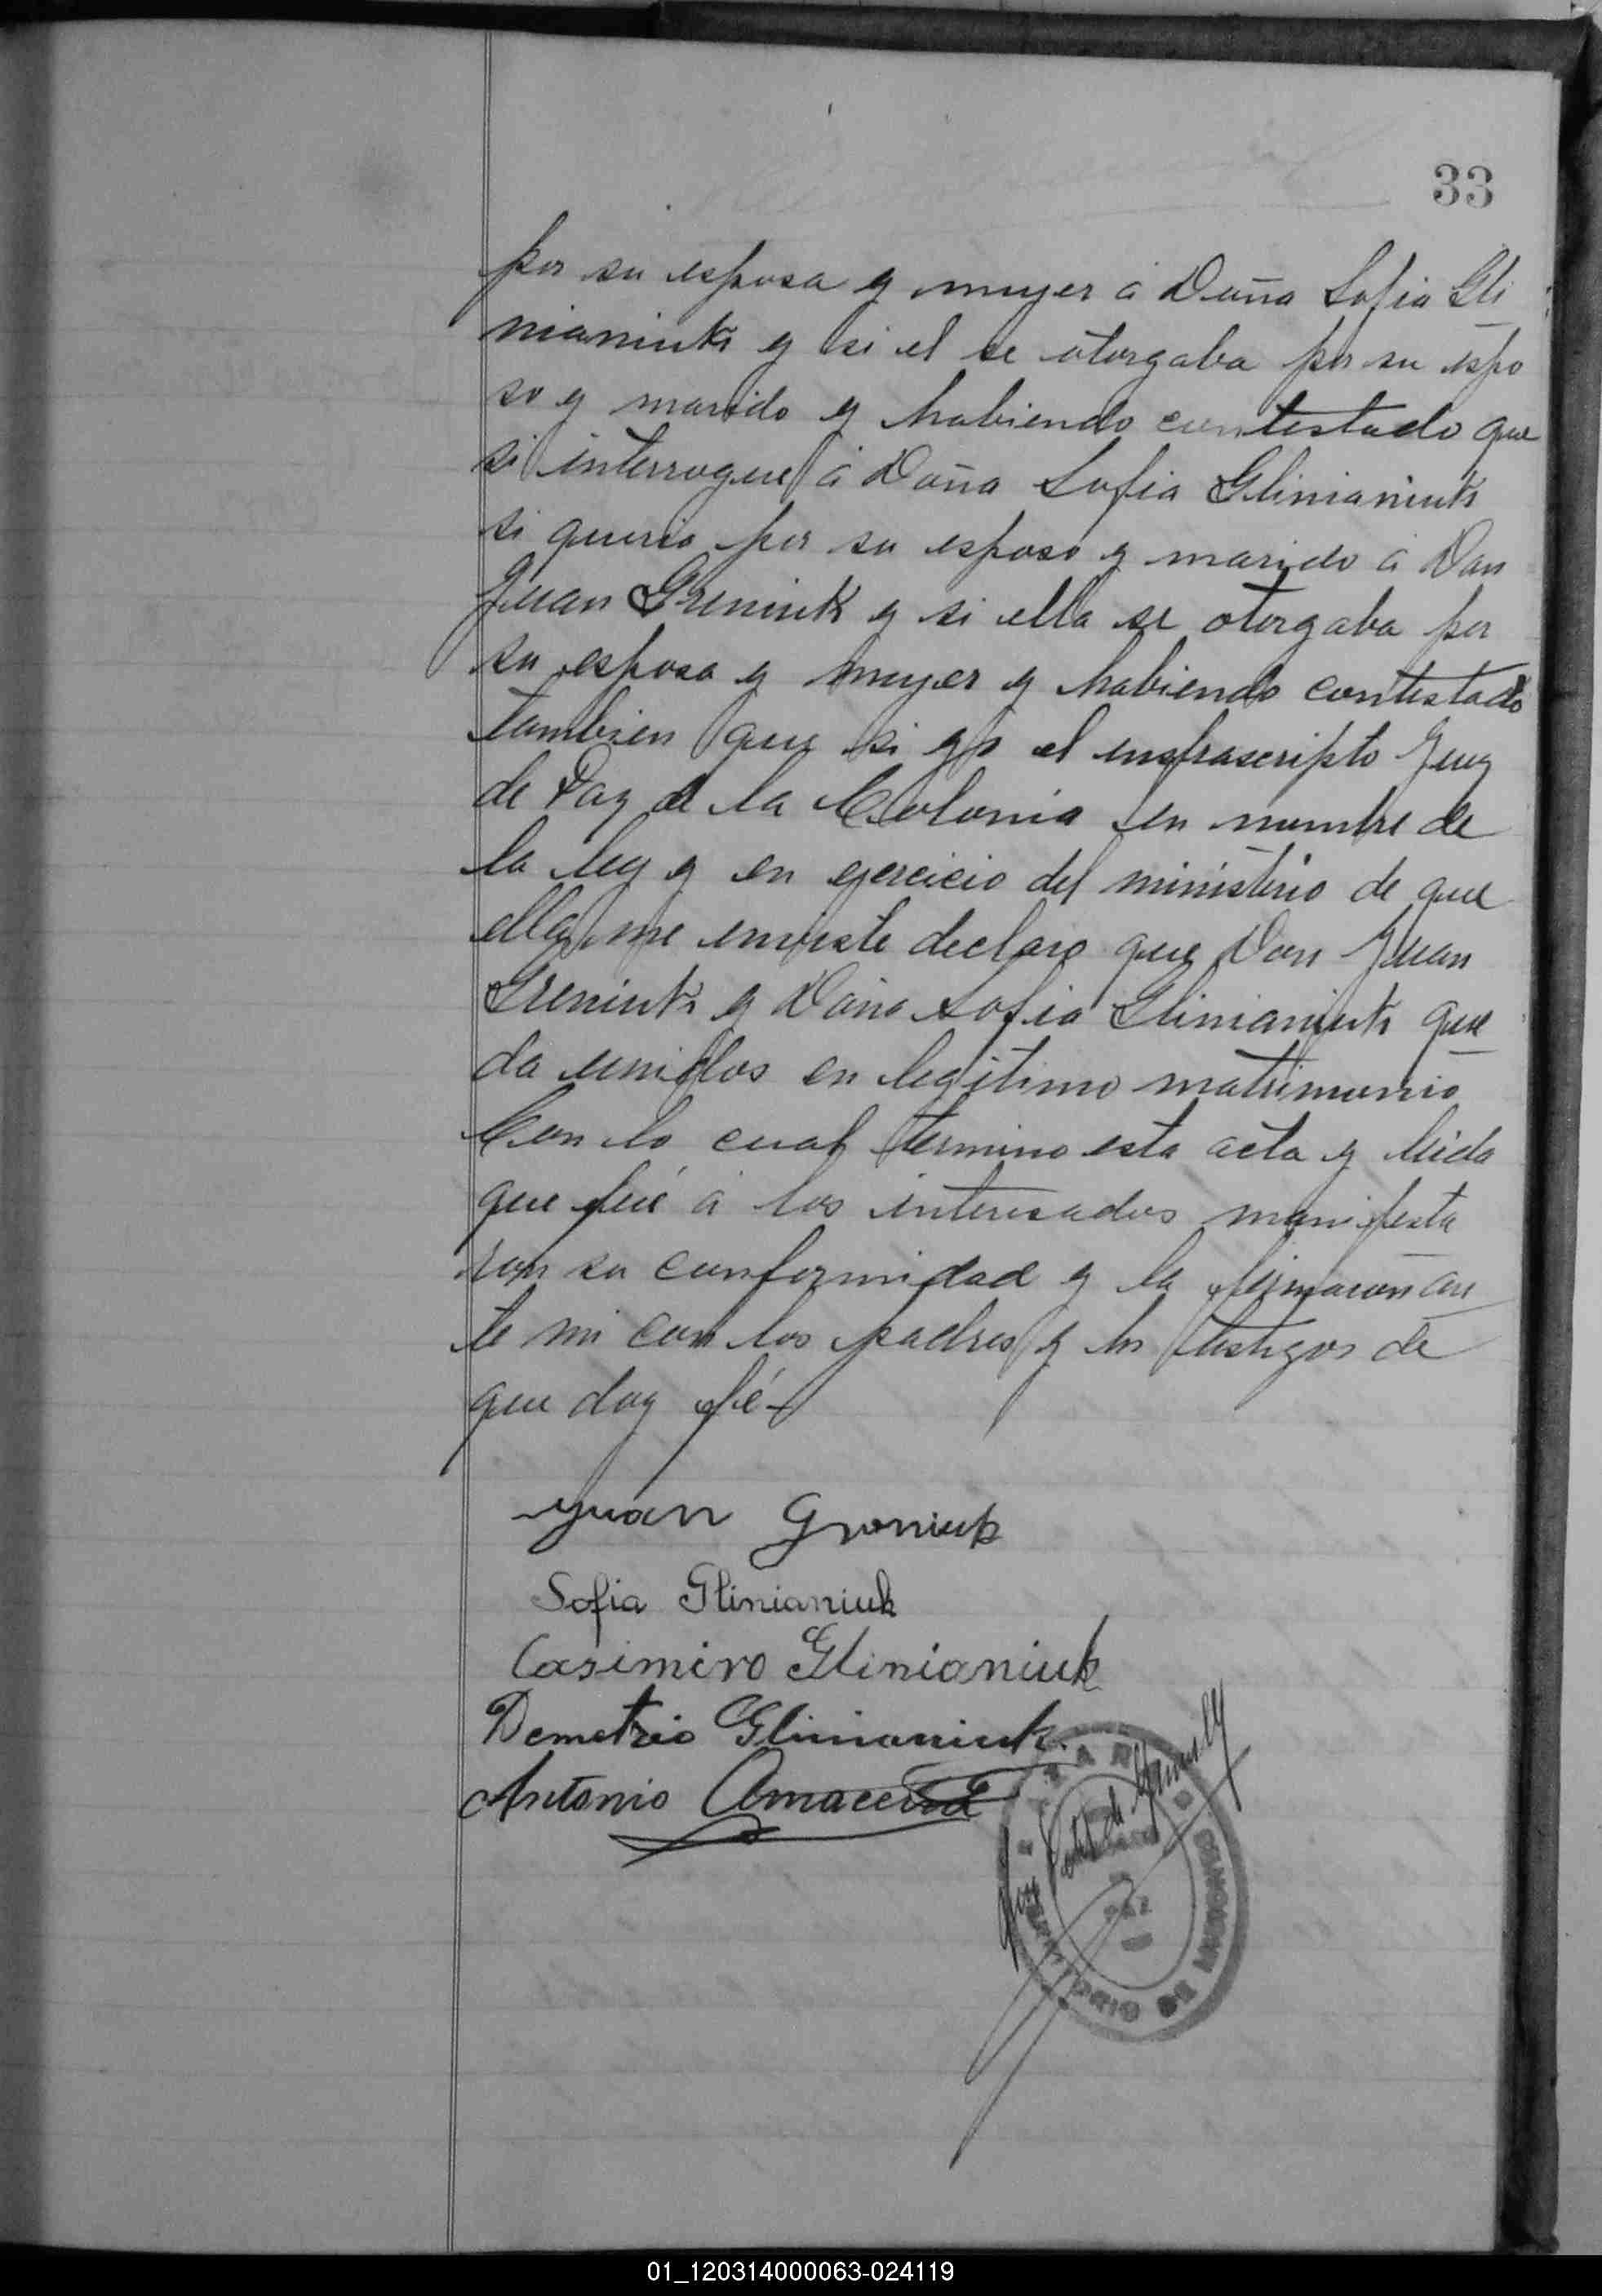 33
por su esposa y muyer á Doña Sofia Gli
nianiuk y si el se otorgaba por su espo
so y marido y habiendo contestado que
si interrogue á Doña Sofia Glinianiuk
si queria por su esposo y marido á Don
Juan Greniuk y si ella se otorgaba por
su esposa y muyer y habiendo contestado
tambien que si yo el infrascripto Juez
de Paz de la Colonia en nombre de
la ley y en ejercicio del ministerio de que
ella me enviste declaro que Don Juan
Greniuk y Doña Sofia Glinianiuk que
da unidos en legitimo matrimonio
Con lo cual termino esta acta y leida
que fué á los interesados manifesta
ron su conformidad y la firmaron an
te mi con los padres y los testigos de
que doy fé-
Juan Groniuk
Sofia Glinianiuk
Casimiro Glinianiuk
Demetrio Glinianiuk
Antonio
01_120314000063-024119